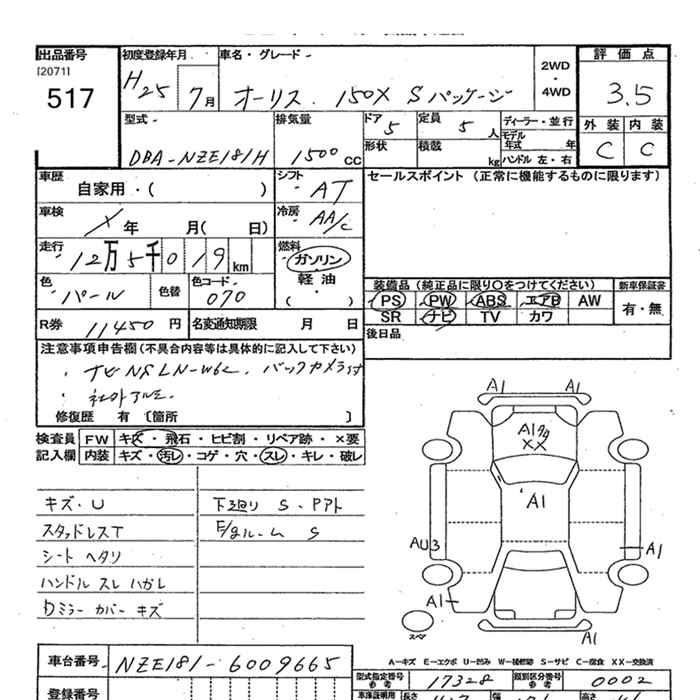 出品番号 初度登録年月 車名・グレード 2WD ・ 4WD 評価点
[2071]
517 H25 7月 オーリス 150X Sパッケージ 3.5
型式 排気量 ドア 5 定員 5人 ディーラー・並行 外装 内装
DBA-NZE181H 1500CC 形状 積載 kg モデル年式 年 C C
ハンドル 左・右
車歴 自家用・( ) シフト AT セールスポイント (正常に機能するものに限ります)
車検 X 年 月( 日) 冷房 AA/C
走行 12万5千019km 燃料 ガソリン・軽油・( )
色 パール 色替 色コード 070
装備品 (純正品に限り○をつけてください) 新車保証書
PS PW ABS エアB AW 有・無
SR ナビ TV カワ
R券 11450円 名変通知期限 月 日
後日品
注意事項申告欄 (不具合内容等は具体的に記入して下さい)
・ナビ バックカメラ付
・社外アルミ
修復歴 有 〔箇所 〕
検査員 FW キズ・飛石・ヒビ割・リペア跡・×要
記入欄 内装 キズ・汚レ・コゲ・穴・スレ・キレ・破レ
キズ・U 下廻り S・Pアト
スタッドレスT E/gルーム S
シート ヘタリ
ハンドル スレ ハガレ
Dミラー カバー キズ
A1 A1
A1
XX
A1
AU3 A1
A1
スペア A1
A-キズ E-エクボ U-凹み W-補修跡 S-サビ C-腐食 XX-交換済
車台番号 NZE181-6009665
型式指定番号 17328 類別区分番号 0002
登録番号